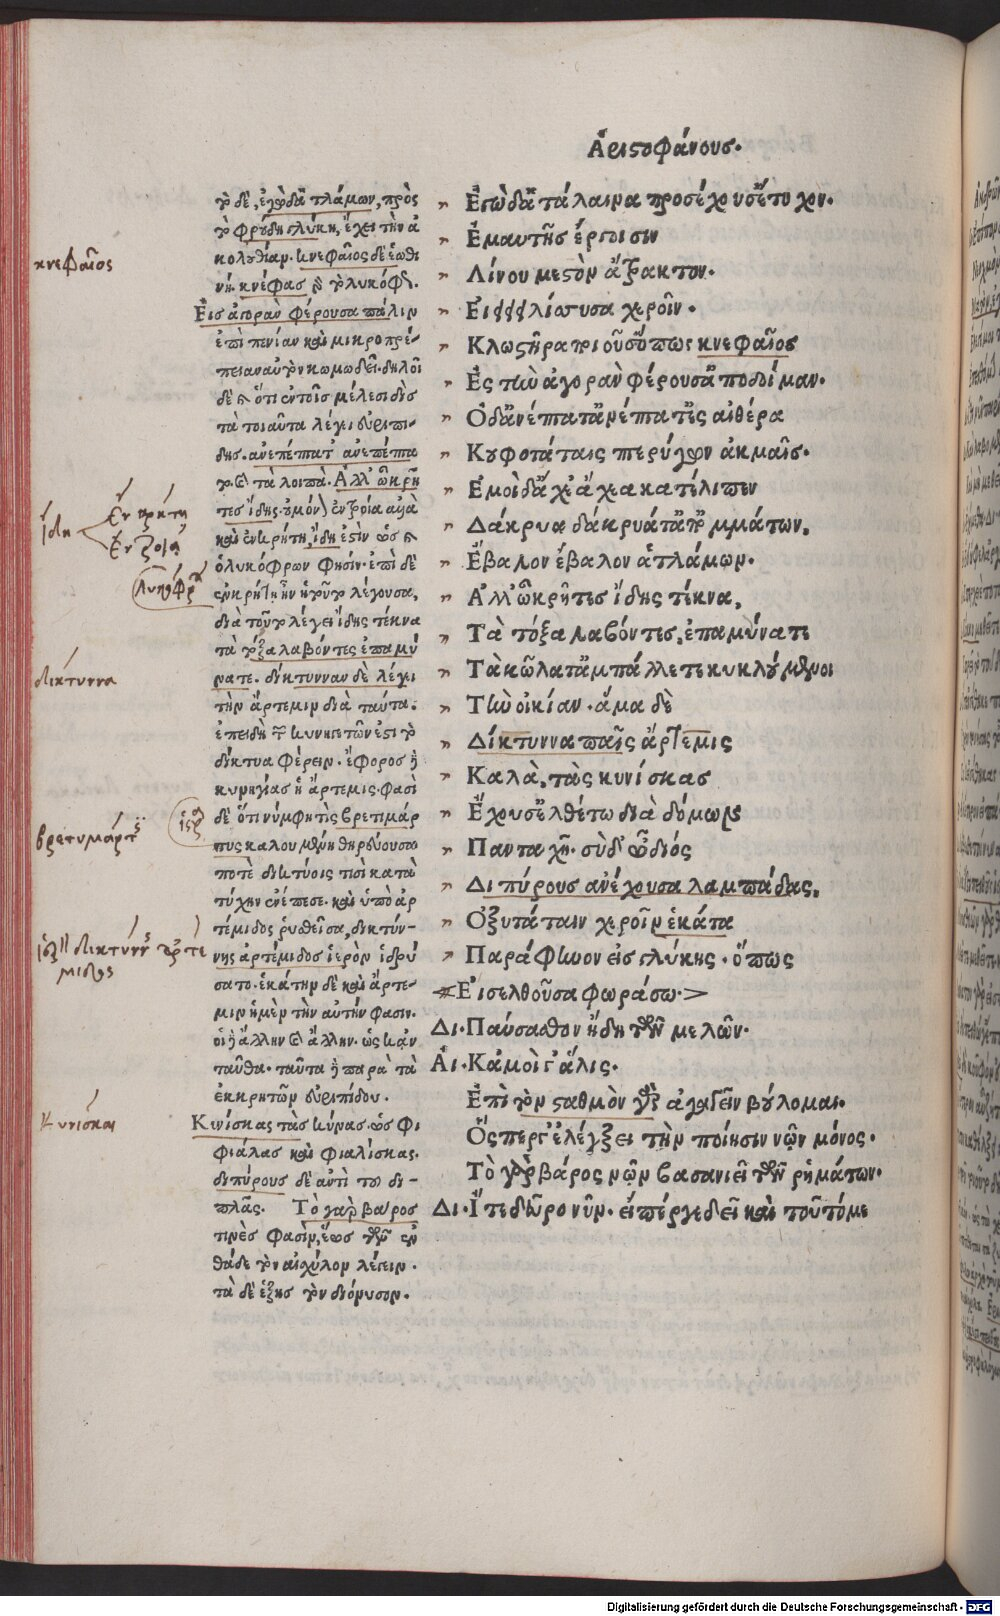 Ἀριστοφάνους.
το δὲ, ἐγὼ δ' ἁ τλάμων, πρὸς
το φρούδη γλύκη, ἔχει τὴν ἀ
κολουθίαν. κνεφαῖος δὲ ἑωθι
νή. κνέφας γὰρ τὸ λυκόφως.
Εἰς ἀγορὰν φέρουσα πάλιν
ἐπὶ πενίαν καὶ μικροπρέ-
πειαν αὐτὸν κωμωδεῖ. δηλοῖ
δὲ καὶ ὅτι ἐν τοῖς μέλεσι δὶς
τὰ τοιαῦτα λέγει εὐριπί-
δης. ἀνέπτατ' ἀνέπτα
το. καὶ τὰ λοιπά. Ἀλλ' ὦ κρῆ
τες ἴδης. οὐ μόνον ἐν τροία ἀλλὰ
καὶ ἐν κρήτη, ἴδη ἐστὶν ὡς καὶ
ὁ λυκόφρων φησίν. ἐπὶ δὲ
ἐν κρήτη ἦν ἡ τοῦτο λέγουσα,
διὰ τοῦτο λέγει ἴδης τέκνα
τὰ τόξα λαβόντες ἐπαμύ
νατε. δίκτυνναν δὲ λέγει
τὴν ἄρτεμιν διὰ ταῦτα.
ἐπειδὴ τῶν κυνηγετῶν ἐστὶ τὸ
δίκτυα φέρειν. ἔφορος δὲ
κυνηγίας ἡ ἄρτεμις. φασὶ
δὲ ὅτι νύμφη τὶς βρετιμάρ
τυς καλουμένη θηρεύουσα
ποτὲ δικτύοις τισὶ κατὰ
τύχην ἐνέπεσε. καὶ ὑπὸ ἀρ
τέμιδος ῥυσθεῖσα, δικτύν-
νης ἀρτέμιδος ἱερὸν ἱδρύ
σατο. ἑκάτην δὲ καὶ ἄρτε-
μιν ἡμὲν τὴν αὐτήν φασιν.
οἱ δὲ ἄλλην καὶ ἄλλην. ὡς κἀν
ταῦθα. ταῦτα δὲ παρὰ τὰ
ἐκ κρητῶν εὐριπίδου.
Κυνίσκας τὰς κύνας. ὡς φι
φιάλας καὶ φιαλίσκας.
διπύρους δὲ ἀντὶ τοῦ δι-
πλᾶς. Τὸ γὰρ βάρος
τινὲς φασὶν, ἕως τῶν ἐν
θάδε τὸν αἰσχύλον λέγειν.
τὰ δὲ ἑξῆς τὸν διόνυσον.
Ἐγὼ δ' ἁ τάλαινα προσέχουσ' ἔτυχον.
Ἐμαυτῆς ἔργοισιν
Λίνου μεστὸν ἄτρακτον.
Ειειειειλίσσουσα χεροῖν.
Κλωστῆρα ποιοῦσ' ὅπως κνεφαῖος
Ἐς τὴν ἀγορὰν φέρουσ' ἀποδοίμαν.
Ὁ δ' ἀνέπτατ' ἀνέπτατ' ἐς αἰθέρα
Κουφοτάταις πτερύγων ἀκμαῖς.
Ἐμοὶ δ' ἄχε' ἄχεα κατέλιπεν
Δάκρυα δάκρυά τ' ἀπ' ὀμμάτων,
Ἔβαλον ἔβαλον ἁ τλάμων.
Ἀλλ' ὦ κρῆτες ἴδης τέκνα,
Τὰ τόξα λαβόντες, ἐπαμύνατε
Τὰ κῶλά τ' ἀμπάλλετε κυκλούμενοι
Τὴν οἰκίαν. ἅμα δὲ
Δίκτυννα παῖς ἄρτεμις
Καλὰ, τὰς κυνίσκας
Ἔχουσ' ἐλθέτω διὰ δόμους
Πανταχῆ. σὺ δ' ὦ διὸς
Διπύρους ἀνέχουσα λαμπάδας,
Ὀξυτάταιν χεροῖν ἑκάτα
Παράφηνον εἰς γλύκης. ὅπως
Εἰσελθοῦσα φωράσω.
Δι. Παύσασθον ἤδη τῶν μελῶν.
Αἰ. Κἀμοὶγ' ἅλις.
Ἐπὶ τὸν σταθμὸν γὰρ ἀγαγεῖν βούλομαι.
Ὅσπερ γ' ἐλέγξει τὴν ποίησιν νῶν μόνος.
Τὸ γὰρ βάρος νῶν βασανιεῖ τῶν ῥημάτων.
Δι. Ἴτε δεῦρο νῦν. εἴπέρ γε δεῖ καὶ τοῦτό με
κνεφαῖος
ἴδη
ἐν κρήτη
ἐν τροία
λυκόφρ
δίκτυννα
βρετυμάρτ
δικτύνν ἀρτέ
μιδος
Κυνίσκαι
Digitalisierung gefördert durch die Deutsche Forschungsgemeinschaft - DFG